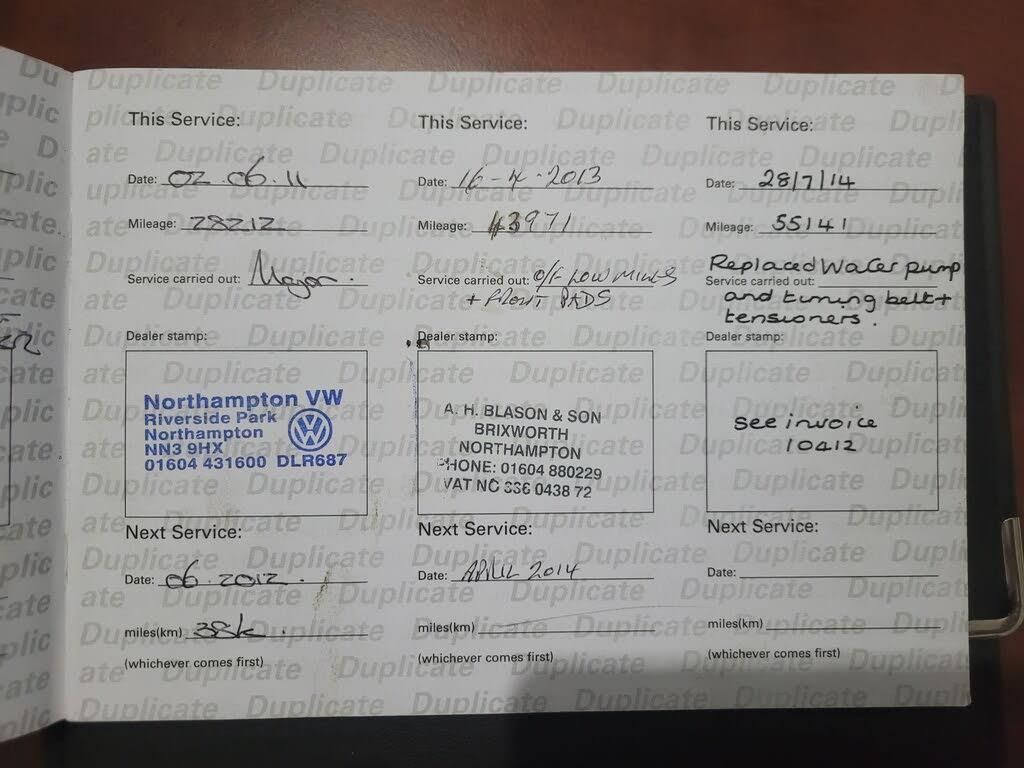 This Service:
Date: 02.06.11
Mileage: 28212
Service carried out: Major.
Dealer stamp:
Northampton VW
Riverside Park
Northampton
NN3 9HX
01604 431600 DLR687
Next Service:
Date: 06.2012.
miles(km) 38k.
(whichever comes first)
This Service:
Date: 16-4-2013
Mileage: 43971
Service carried out: O/F LOW MILES
+ FRONT PADS
Dealer stamp:
A. H. BLASON & SON
BRIXWORTH
NORTHAMPTON
PHONE: 01604 880229
VAT NO 336 0438 72
Next Service:
Date: APRIL 2014
miles(km)
(whichever comes first)
This Service:
Date: 28/7/14
Mileage: 55141
Replaced Water pump
Service carried out:
and timing belt +
tensioners.
Dealer stamp:
See invoice
10412
Next Service:
Date:
miles(km)
(whichever comes first)
Duplicate